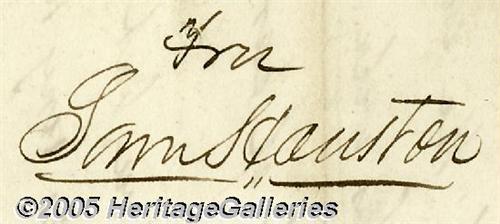 Sam Houston
©2005 HeritageGalleries